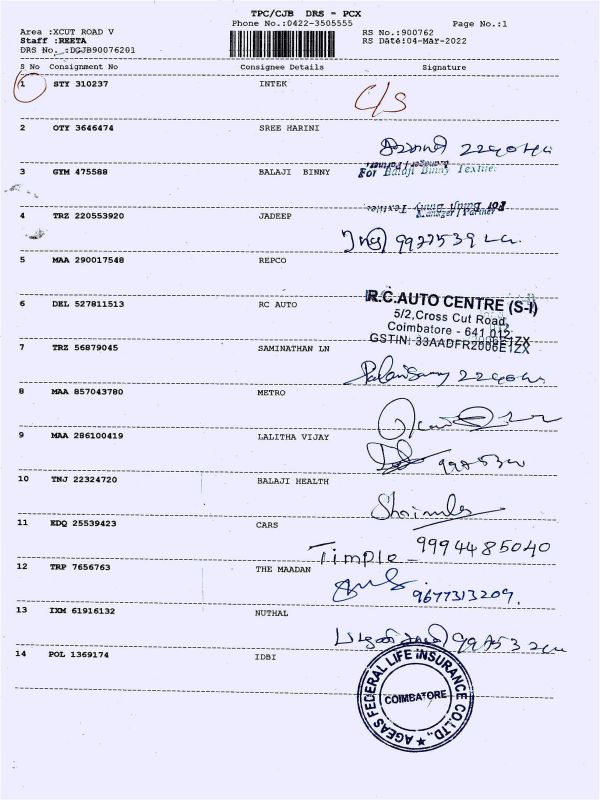 TPC/CJB DRS - PCX
Phone No.:0422-3505555
Page No.:1
Area :XCUT ROAD V
RS No.:900762
Staff :REETA
RS Date:04-Mar-2022
DRS No. :DGJB90076201
S No Consignment No Consignee Details Signature
1 STY 310237 INTEK
C/S
2 OTY 3646474 SREE HARINI
3 GYM 475588 BALAJI BINNY
For Balaji Binny Textiles
Manager / Partner
For Balaji Binny Textiles
Manager / Partner
4 TRZ 220553920 JADEEP
5 MAA 290017548 REPCO
6 DEL 527811513 RC AUTO
R.C.AUTO CENTRE (S-I)
5/2,Cross Cut Road,
Coimbatore - 641 012.
GSTIN: 33AADFR2006E1ZX
7 TRZ 56879045 SAMINATHAN LN
8 MAA 857043780 METRO
9 MAA 286100419 LALITHA VIJAY
10 TNJ 22324720 BALAJI HEALTH
11 EDQ 25539423 CARS
Timple 9994485040
12 TRP 7656763 THE MAADAN
9677313209.
13 IXM 61916132 NUTHAL
14 POL 1369174 IDBI
AGEAS FEDERAL LIFE INSURANCE CO.LTD., ★
COIMBATORE